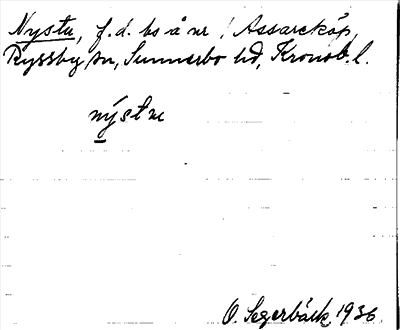 Nystu, f.d. bs å nr 1 Assareköp,
Ryssby sn, Sunnerbo hd, Kronob. l.
nýstu
O. Segerbäck 1936